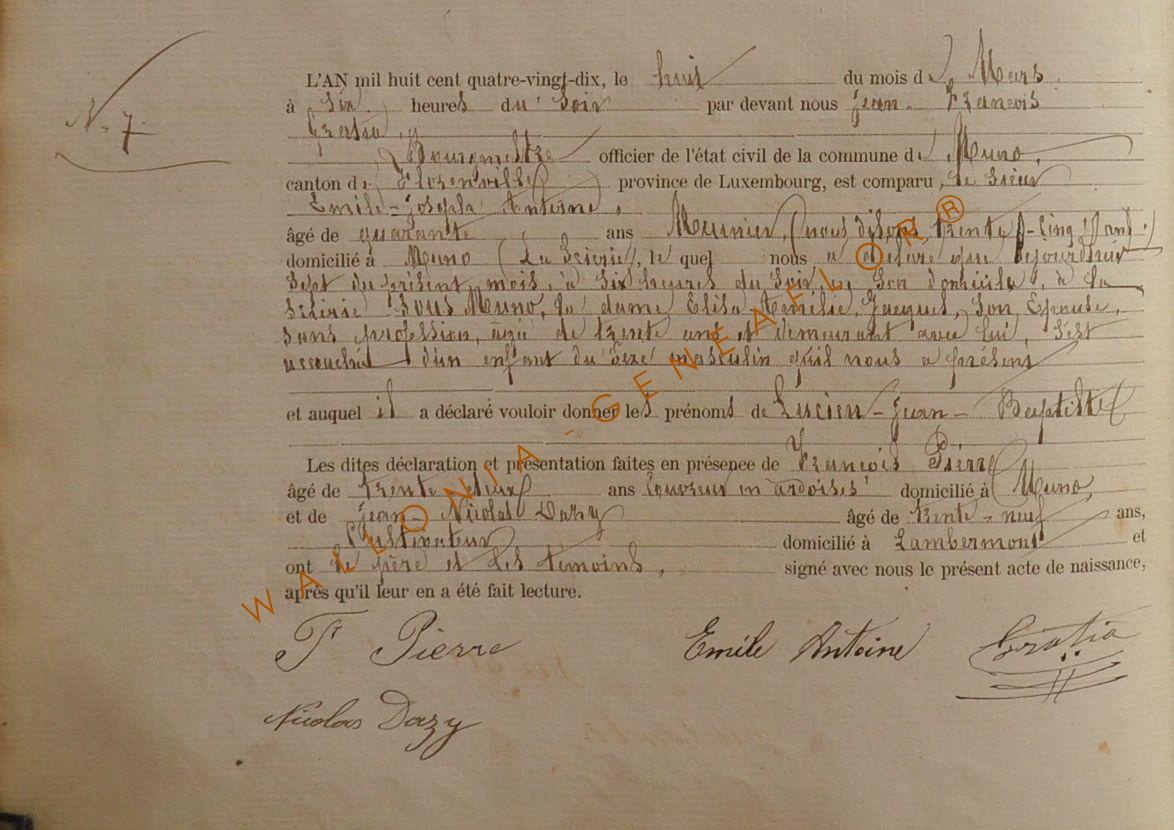 N. 7.
L'AN mil huit cent quatre-vingt-dix, le huit du mois de Mars
à six heures du soir par devant nous Jean-François
Gratia,
Bourgmestre officier de l'état civil de la commune de Muno,
canton de Florenville province de Luxembourg, est comparu, le sieur
Emile-Joseph Antoine,
âgé de quarante ans Meunier, (nous disons trente-cinq ans.)
domicilié à Muno (La Scierie), le quel nous a déclaré que le jour d'hier
sept du présent mois, à six heures du soir, en son domicile, à la
Scierie-sous-Muno, la dame Elisa Amélie Jacques, son Epouse,
sans profession, âgée de trente ans et demeurant avec lui, s'est
accouchée d'un enfant du sexe masculin qu'il nous a présenté
et auquel il a déclaré vouloir donner les prénoms de Lucien-Jean-Baptiste
Les dites déclaration et présentation faites en présence de François Pierre
âgé de trente deux ans couvreur en ardoises domicilié à Muno,
et de Jean-Nicolas Dazy âgé de trente-neuf ans,
Cultivateur domicilié à Lambermont et
ont le père et les témoins, signé avec nous le présent acte de naissance,
après qu'il leur en a été fait lecture.
Fr Pierre Emile Antoine Gratia
Nicolas Dazy
WALLONIA-GENEAFLOR®